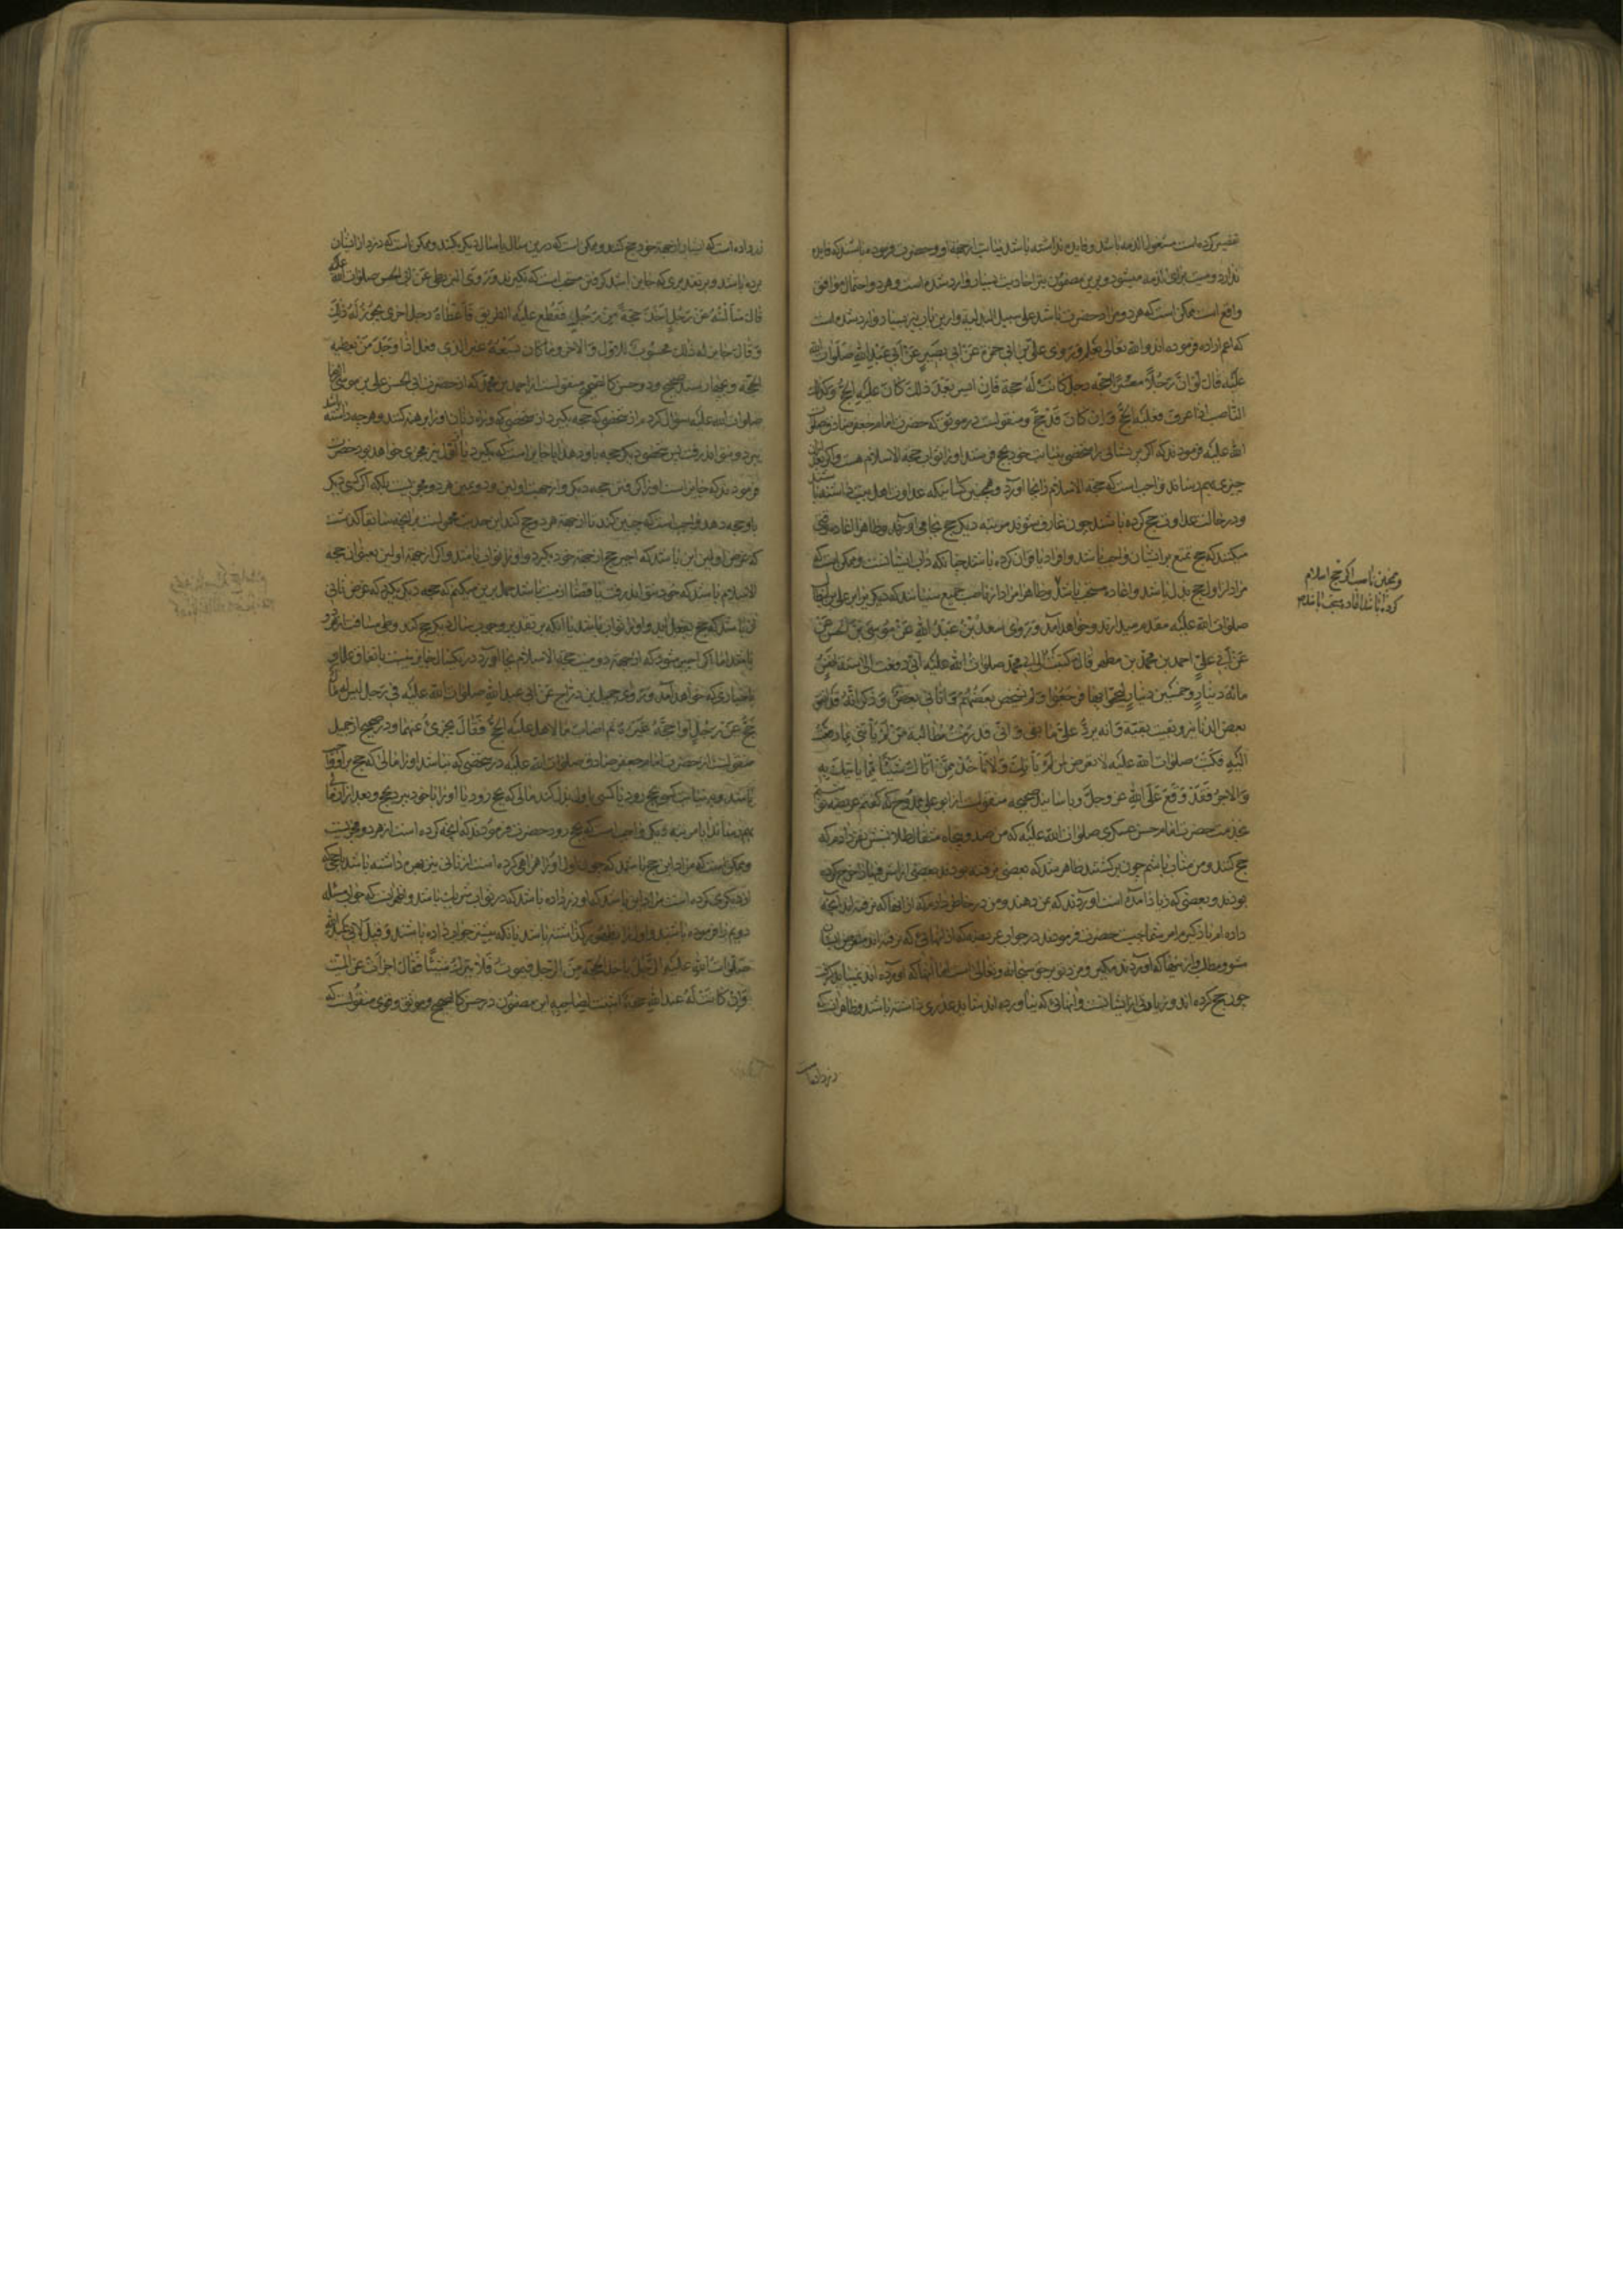 تقصیر کرده است مشغول الذمه باشد و فایده نداشته باشد نیابت از جهة او و حضرت فرموده باشند که فایده
ندارد و میت بری الذمه میشود و برین مضمون نیز احادیث بسیار وارد شده است و هر دو احتمال موافق
واقع است ممکن است که هر دو مراد حضرت باشد علی سبیل البدلیة و ازین باب نیز بسیار وارد شده است
که اعم اراده فرموده اند والله تعالی یعلم وَرَوی علی بن ابی حمزة عَنْ ابی بَصیرٍ عَنْ اَبی عَبْدِ اللهِ صَلَوات الله
عَلَیْه قال لَوْ اَنَّ رَجُلاً معسراً احجّه رجل کانَتْ لَهُ حجة فَاِن ایسر بَعْدَ ذلِکَ کانَ علیه الحَجُّ وکذلک
النّاصب اذا عرف فعلیه الحَجّ وَاِن کانَ قَدْ حَجَّ و منقولست در موثق که حضرت امام جعفر صادق صلوات
الله علیه فرمودند که اگر پریشانی را شخصی بنیابت خود بحج فرستد او را ثواب حجة الاسلام هست و اگر بعد از آن
چیزی بهم رساند واجب است که حجة الاسلام را بجا آورد و همچنین کسانی که عداوت اهل بیت داشته باشند
و در حالت عداوت حج کرده باشند چون عارف شوند مرتبه دیگر حج بجا می آورند و ظاهرا اعاده وقتی
میکنند که حج تمتع بر ایشان واجب باشد و افراد یا قران کرده باشند چنانکه داب ایشانست و ممکن است که
مراد از او حج بذل باشد و اعاده مستحب باشد و ظاهرا مراد از ناصب جمیع سنیانند که دیگر برا بر علی بن ابیطالب
صلوات الله علیه مقدم میدارند و خواهد آمد وَرَوی سعدُ بْنُ عَبْدِ اللهِ عَنْ مُوسَی بْنِ الحسن عَنْ
عَنْ اَبی عَلیٍّ احمد بن محمد بن مطهر قال کتبت الی ابی محمد صلوات الله علیه انّی دفعت الی ستة انفس
مائة دینارٍ و خمسین دینارٍ لیحجّوا بها فرجعوا و لم یشخص بعضهم وَاَتانی بعضٌ و ذکر انّه قد انفق
بعض الدنانیر و بقیت بقیة و انه یردّ علیّ ما بقی و انّی قد رمت مطالبة من لم یأتنی بما دفعت
الیه فکتب صلوات الله علیه لا تعرض لمن لم یأتک وَلا تأخذ ممّن اتاک شیئًا ممّا یأتیک به
وَالاجر فقد وقع عَلَی اللهِ عز وجلّ و باسانید صحیحه منقولست از ابو علی ممدوح که گفتم عریضه نوشتم
بخدمت حضرت امام حسن عسکری صلوات الله علیه که من صد و پنجاه مثقال طلا بشش نفر دادم که
حج کنند و من مثاب باشم چون برگشتند ظاهر شد که بعضی نرفته بودند و بعضی از این شش زیاد خرج کرده
بودند و بعضی که زیاد آمده است آوردند که من دهند و من در خاطر دارم که از آنها که نرفته اند آنچه
داده ام باز گیرم امر شما چیست حضرت فرمودند در جواب عریضه که از آنهائی که نرفته اند متعرض ایشان
مشو و مطلب و از اینها که آوردند مگیر و مزد تو بر حق سبحانه و تعالی است اما آنها که آورده اند نمیباید گرفت
چون حج کرده اند و زیادتی از ایشانست و آنهائی که نیاورده اند شاید عذری داشته باشند و ظاهر آنست که
در نزد انها
و همچنین ناصب اگر حج اسلام
کرده باشد اعاده مستحب باشد
نزد داده است که ایشان از جهة خود حج کنند و ممکن است که درین سال یا سال دیگر بکنند و ممکن است که دزد از ایشان
برده باشد و بر تقدیری که جایز باشد گرفتن مستحب است که نگیرند وَرَوی البزنطی عَنْ ابی الحسن صلوات الله علیه
قال سَاَلْتُهُ عَنْ رَجُلٍ اَخَذَ حَجَّةً مِنْ رَجُلٍ فَقُطِعَ عَلَیْهِ الطریق فَاَعْطاهُ رجل اخری یَجُوزُ لَهُ ذلِکَ
وَقال جایز له ذلک محسوبٌ للاوّل وَالاخر وما کان یَسَعُهُ غیر الذی فعل اذا وَجَدَ مَنْ یعطیه
الحجّة و بچهار سند صحیح و دو حسن کالصحیح منقولست از احمد بن محمد که از حضرت ابی الحسن علی بن موسی الرضا
صلوات الله علیه سؤال کردم از شخصی که حجه بگیرد از شخصی و دزدان او را برهنه کنند و هر چه داشته باشد
ببرند و نتواند رفت پس شخصی دیگر حجه باو دهد آیا جایز است که بگیرد یا آنکه نیز مجزی خواهد بود حضرت
فرمودند که جایز است او را گرفتن حجه دیگر و از جهت اولین و دومین هر دو مجزیست بلکه اگر کسی دیگر
باو حجه دهد واجب است که چنین کند تا از جهة هر دو حج کند این حدیث محمولست بر آنچه سابقا گذشت
که غرض اولین این باشد که اجیر حج از جهة خود بگیرد و او را ثواب باشد و اگر از جهة اولین بعنوان حجة
الاسلام باشد که خود نتواند رفت یا قضا از میت باشد حمل برین میکنم که حجه دیگر بگیرد که غرض ثانی
آن باشد که حج بعمل آید و او را ثواب باشد یا آنکه بر تقدیر وجوب سال دیگر حج کند
باشد اما اگر اجیر شود که از جهة دو میت حجة الاسلام بجا آورد در یکسال جایز نیست باتفاق علما و
باخباری که خواهد آمد وَرَوی جمیل بن دَرّاج عَنْ ابی عبد الله صَلَوات الله علیه فی رَجل لیس له مال
حَجَّ عَنْ رَجُلٍ اَو احَجَّهُ غَیْرُهُ ثم اصاب مالا هل علیه الحَجّ فَقالَ یجزئُ عنهما و در صحیح از جمیل
منقولست از حضرت امام جعفر صادق صلوات الله علیه در شخصی که نباشد او را مالی که حج بر او واجب
باشد و به نیابت کسی بحج رود یا کسی باو بذل کند مالی که بحج رود یا او را با خود ببرد بحج و بعد از آن مالی
بهم رساند آیا مرتبه دیگر واجب است که بحج رود حضرت فرمودند که آنچه کرده است از هر دو مجزیست
و ممکن است که مراد این حج باشد که چون اول او را همراهی کرده است از ثانی نیز بهره داشته باشد یا حجی که
از دیگری کرده است مراد این باشد که او نزد داده باشد که در ثواب شریک باشد و اظهر آنست که جواب مسئله
دویم را فرموده باشند و اول را بظهور گذاشته باشد یا آنکه پیشتر جواب داده باشند وَقیل لابی عَبْدِ اللهِ
صَلَواتُ اللهِ عَلَیْهِ الرَّجُلُ یاخذ الحجّة مِنَ الرّجل فیموتُ فَلا یَتْرُکُ شَیْئًا فَقالَ اجزأت عَنِ المَیّت
وَاِنْ کانَتْ لَهُ عندَ اللهِ حَجَّةٌ اثبتت لِصاحِبِهِ این مضمون در حسن کالصحیح و موثق و قوی منقولست که